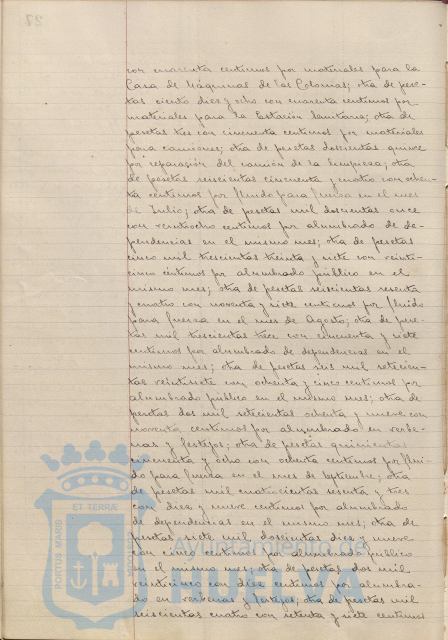 con cuarenta centimos por materiales para la
Casa de Máquinas de las Colonias; otra de pese-
tas ciento diez y ocho con cuarenta centimos por
materiales para la Estación Sanitaria; otra de
pesetas tres con cincuenta centimos por materiales
para camiones; otra de pesetas doscientas quince
por reparación del camión de la limpieza; otra
de pesetas seiscientas cincuenta y cuatro con ochen-
ta centimos por fluido para fuerza en el mes
de Julio; otra de pesetas mil doscientas once
con veintiocho centimos por alumbrado de de-
pendencias en el mismo mes; otra de pesetas
cinco mil trescientas treinta y siete con veinti-
cinco centimos por alumbrado público en el
mismo mes; otra de pesetas seiscientas sesenta
y cuatro con noventa y siete centimos por fluido
para fuerza en el mes de Agosto; otra de pese-
tas mil trescientas trece con cincuenta y siete
centimos por alumbrado de dependencias en el
mismo mes; otra de pesetas seis mil setecien-
tas veintisiete con ochenta y cinco centimos por
alumbrado público en el mismo mes; otra de
pesetas dos mil setecientas ochenta y nueve con
noventa centimos por alumbrado en verbe-
nas y festejos; otra de pesetas quinientas
cincuenta y ocho con ochenta centimos por flui-
do para fuerza en el mes de Septiembre; otra
de pesetas mil cuatrocientas sesenta y tres
con diez y nueve centimos por alumbrado
de dependencias en el mismo mes; otra de
pesetas siete mil doscientas diez y nueve
con cinco centimos por alumbrado público
en el mismo mes; otra de pesetas dos mil
veinticinco con diez centimos por alumbra-
do en verbenas y festejos; otra de pesetas mil
seiscientas cuatro con setenta y siete centimos
ET TERRÆ
PORTUS MARIS
Ayuntamiento de
27